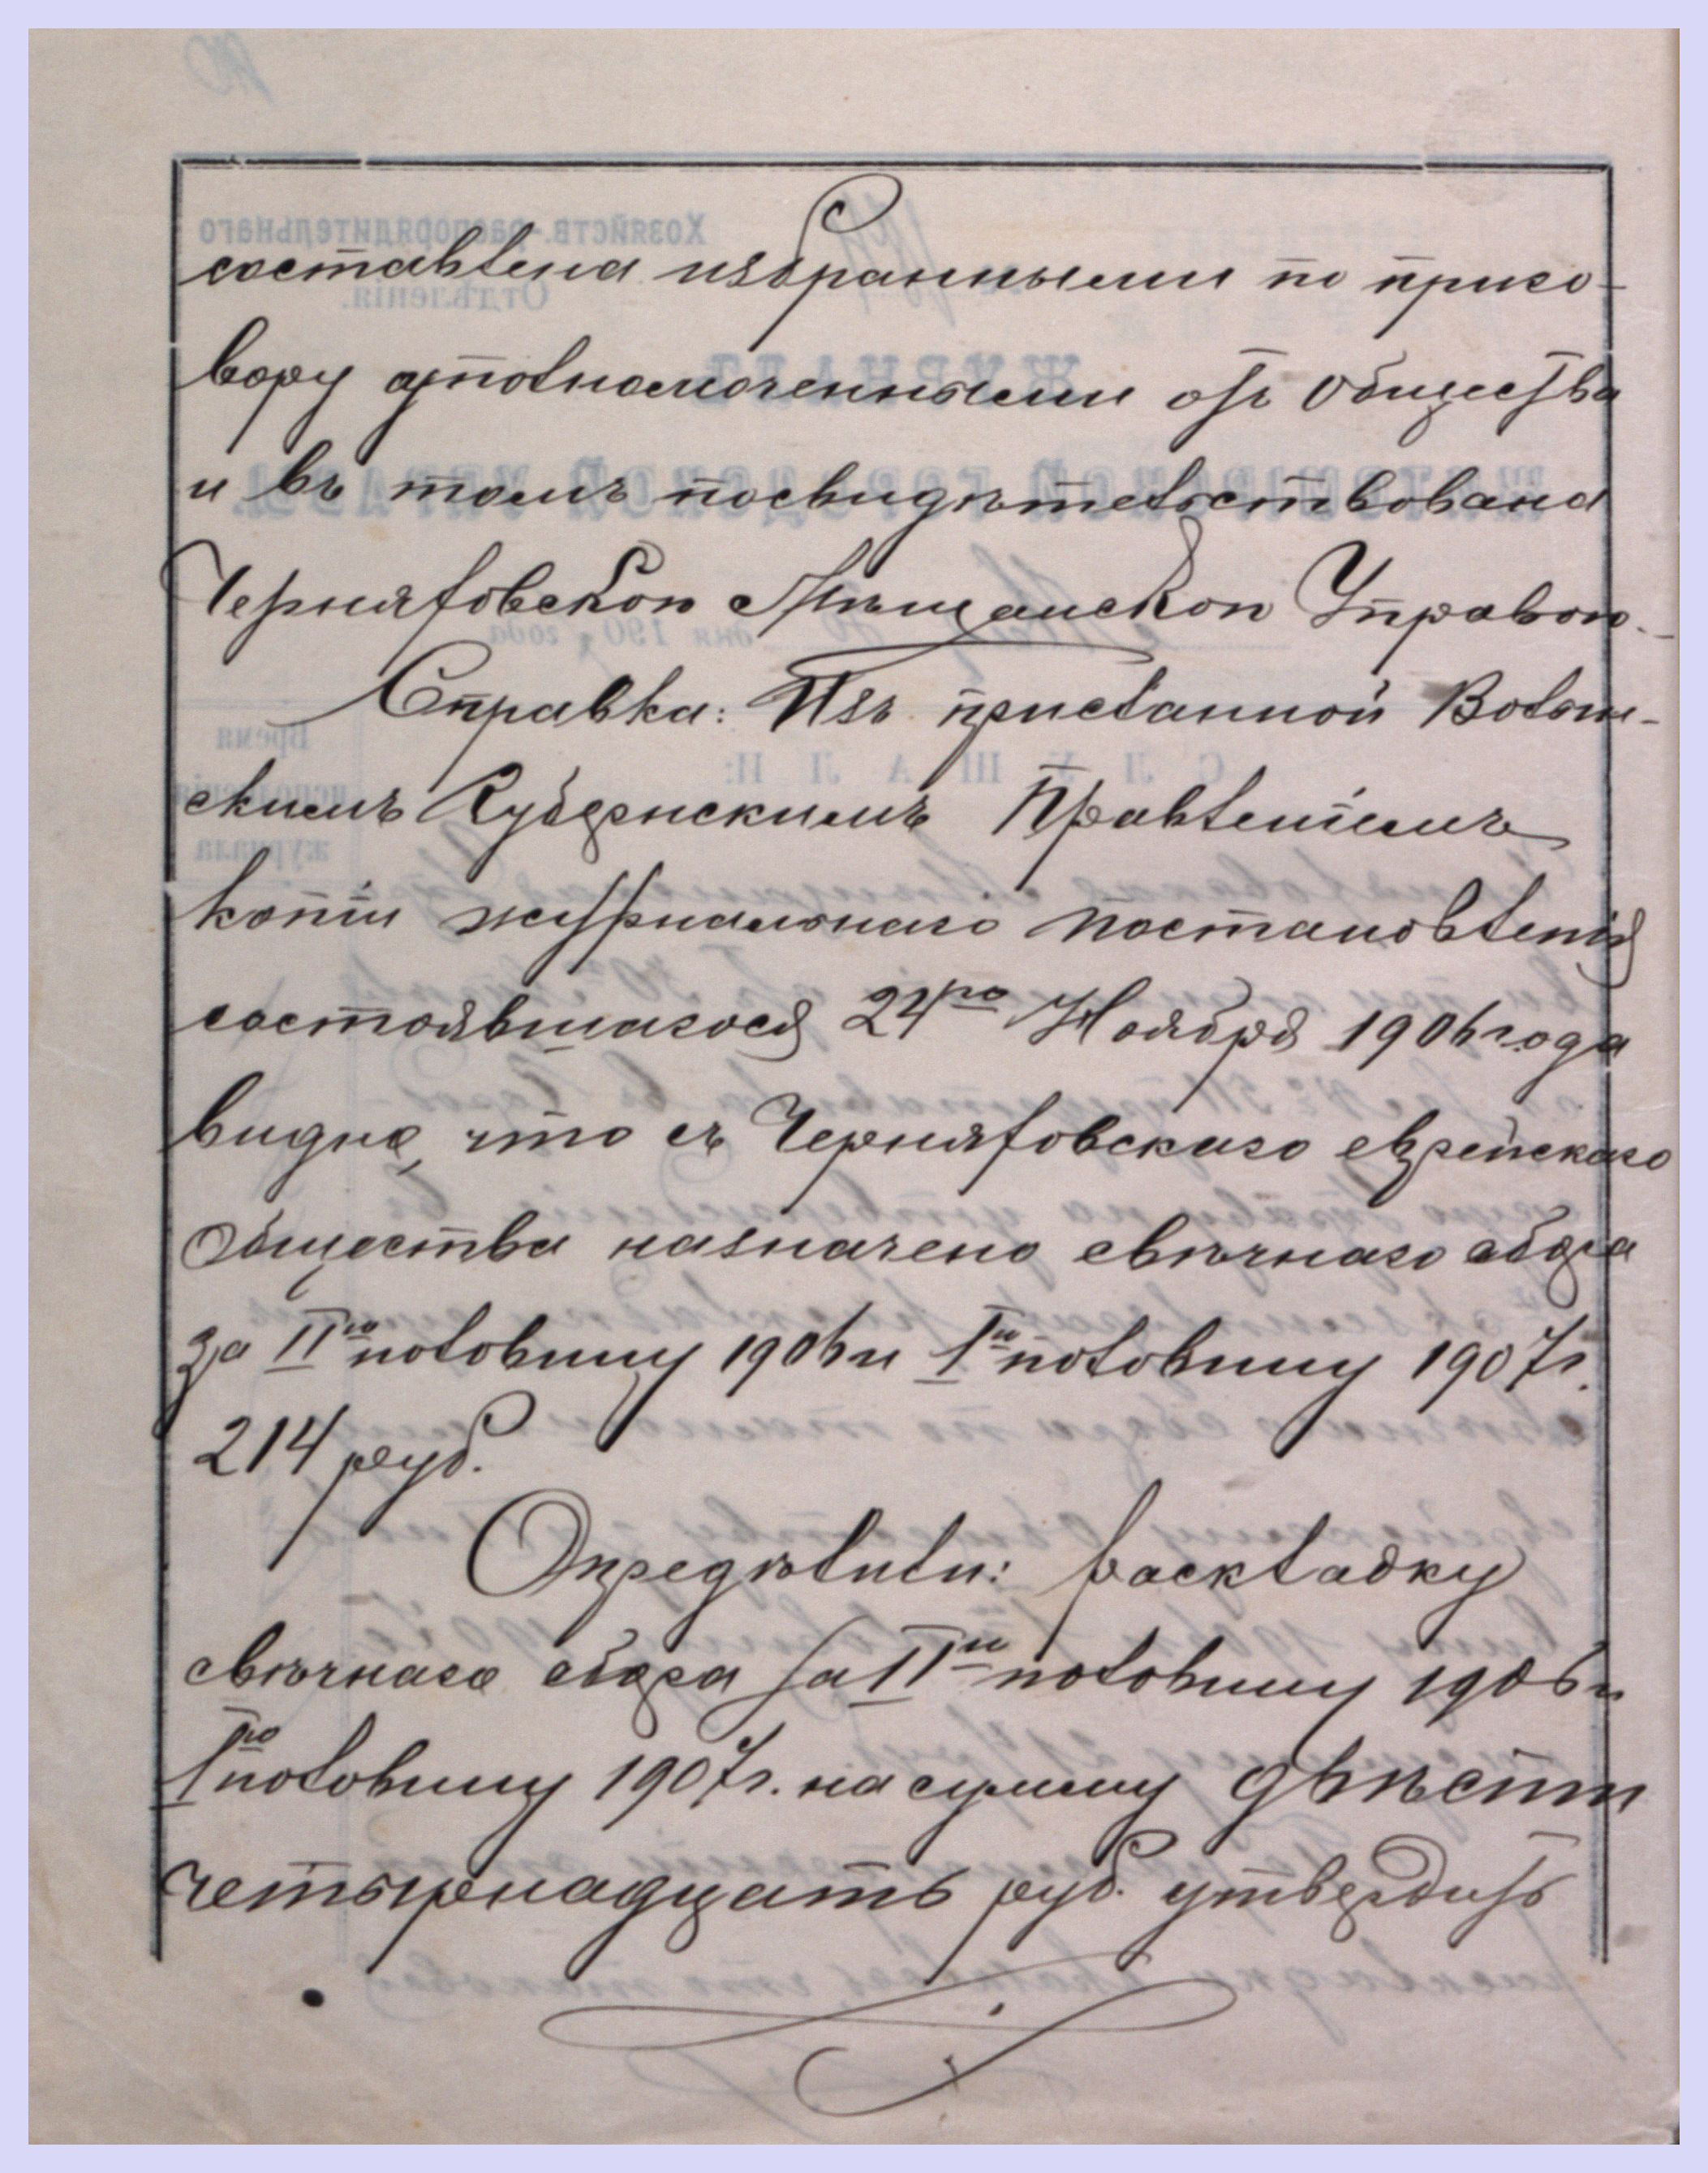 составлена избранными по приго-
вору уполномоченными отъ Общества
и въ томъ посвидѣтельствована
Черняховской Мѣщанской Управою.
Справка: Изъ присланной Волын-
скимъ Губернскимъ Правленіемъ
копіи журнальнаго постановленія
состоявшагося 24го Ноября 1906 года
видно, что съ Черняховскаго еврейскаго
Общества назначено свѣчнаго сбора
за IIю половину 1906 и Iю половину 1907 г.
214 руб.
Опредѣлили: раскладку
свѣчнаго сбора за IIю половину 1906 и
Iю половину 1907 г. на сумму двѣсти
четырнадцать руб. утвердить